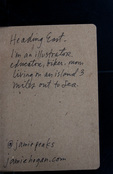 Heading East.
I'm an illustrator,
educator, hiker, mom
living on an island 3
miles out to sea.
@jamiepeaks
jamiehogan.com